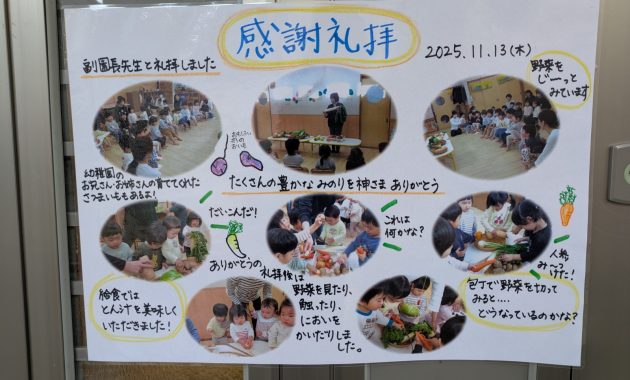 感謝礼拝
2025.11.13(木)
副園長先生と礼拝しました
野菜を
じーっと
みています
幼稚園の
お兄さん・お姉さんの育ててくれた
さつまいももあるよ!
たくさんの豊かなみのりを神さま ありがとう
だいこんだ!
これは
何かな?
人参
み〜つ
けた!
ありがとうの礼拝後は
野菜を見たり、
触ったり、
においを
かいだりしま
した。
給食では
とん汁を美味しく
いただきました!
包丁で野菜を切って
みると....
どうなっているのかな?